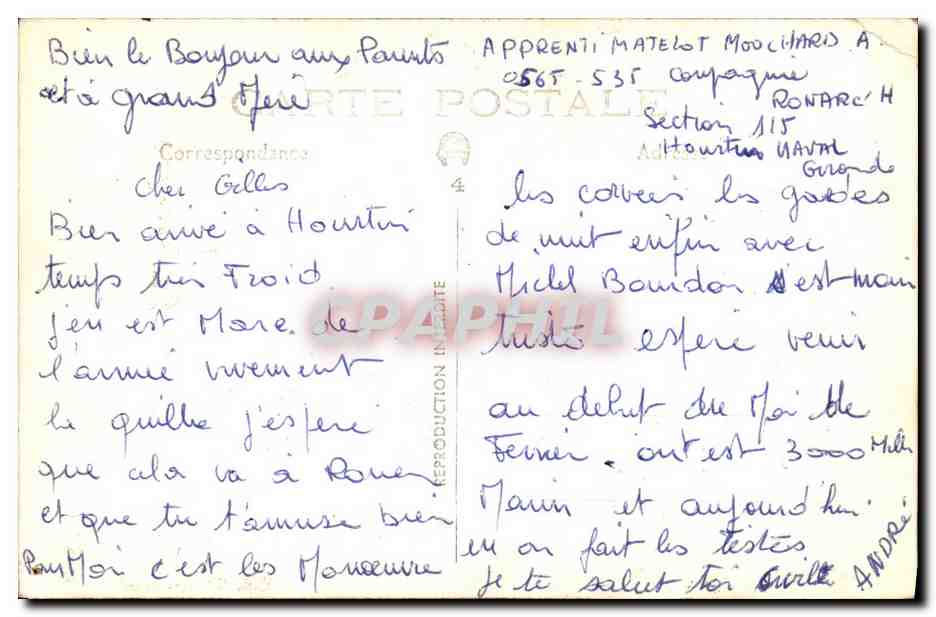 Bien le Bonjour aux Parents
et à grand Mère
APPRENTI MATELOT MOUCHARD A
0565-535 Compagnie
RONARC'H
Section 115
Hourtin NAVAL
Gironde
CARTE POSTALE
Correspondance
Adresse
4
REPRODUCTION INTERDITE
CPAPHIL
cher Gilles
Bien arrivé à Hourtin
temps tres Froid
j'en est Mare de
l'armée vivement
la quille j'espere
que cela va à Rouen
et que tu t'amuse bien
Pour Moi c'est les Manœuvre
les corveés les gardes
de nuit enfin avec
Michel Bourdon s'est moin
triste espere venir
au debut du Moi de
Fevrier. ont est 3000 Mille
Marin et aujourd'hui
on fait les testes
Je te salut toi
ANDRÉ